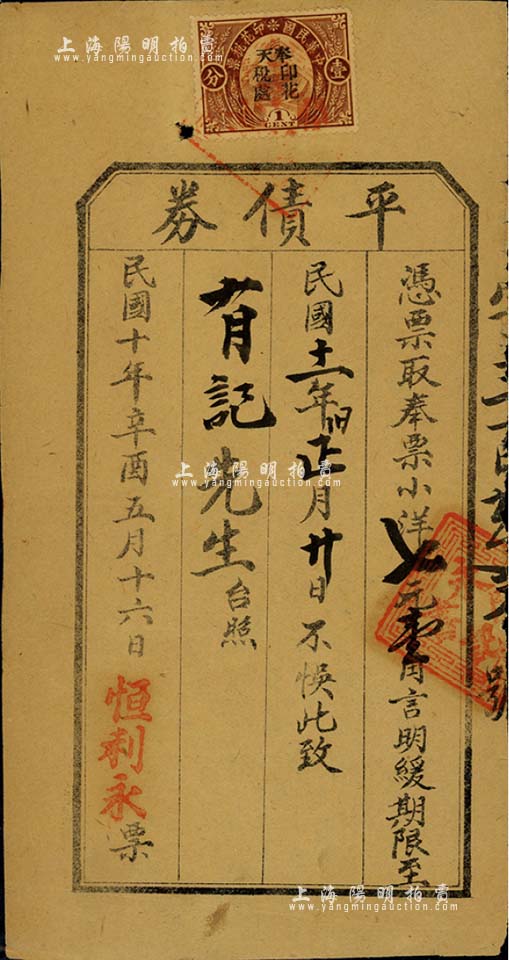 上海陽明拍賣
www.yangmingauction.com
中華民國印花稅票
壹
分
奉天
印花
稅處
1
CENT
平債券
憑票取奉票小洋 元壹角言明緩期限至
民國十一年旧正月廿日不悞此致
有記先生台照
民國十年辛酉五月十六日恒利永票
號
上海陽明拍賣
www.yangmingauction.com
上海陽明拍賣
www.yangmingauction.com